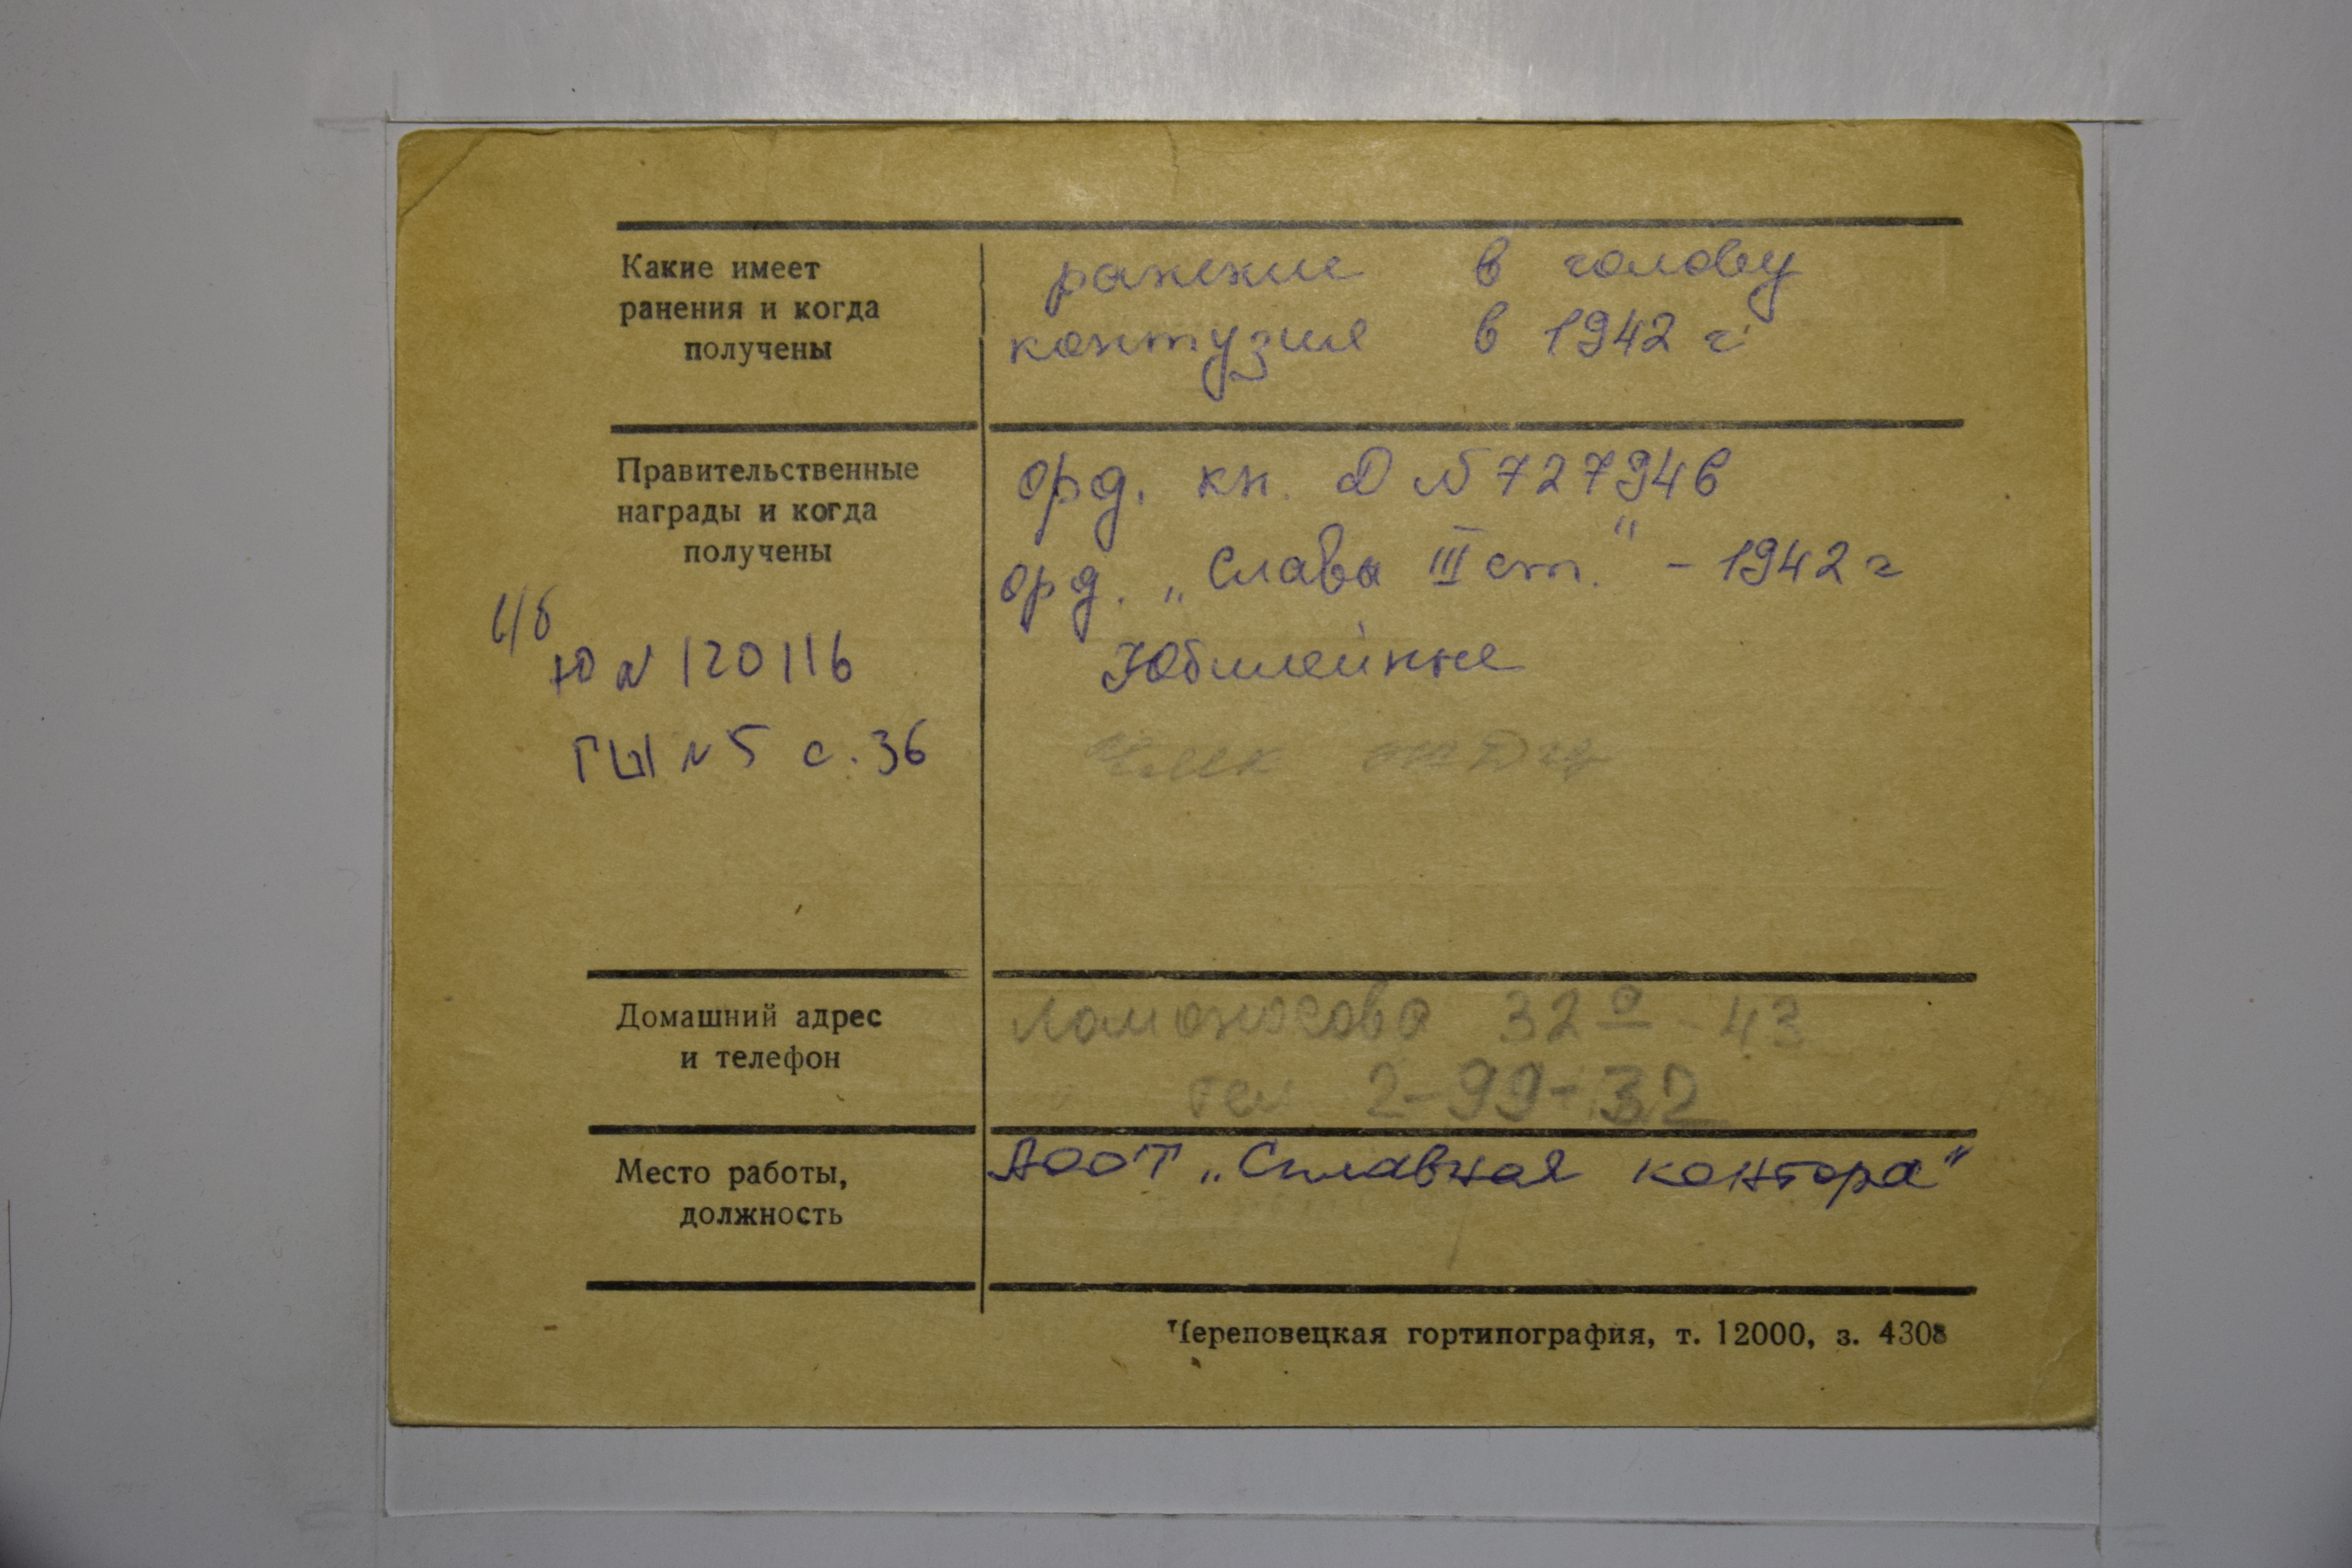 Какие имеет
ранения и когда
получены
ранение в голову
контузия в 1942 г.
Правительственные
награды и когда
получены
орд. кн. Д № 727946
орд. „Слава III ст." - 1942 г
Юбилейные
Ю № 120116
ГЫ № 5 с. 36
Домашний адрес
и телефон
Ломоносова 32а - 43
тел 2-99-32
Место работы,
должность
АООТ „Сплавная контора"
Череповецкая гортипография, т. 12000, з. 4308